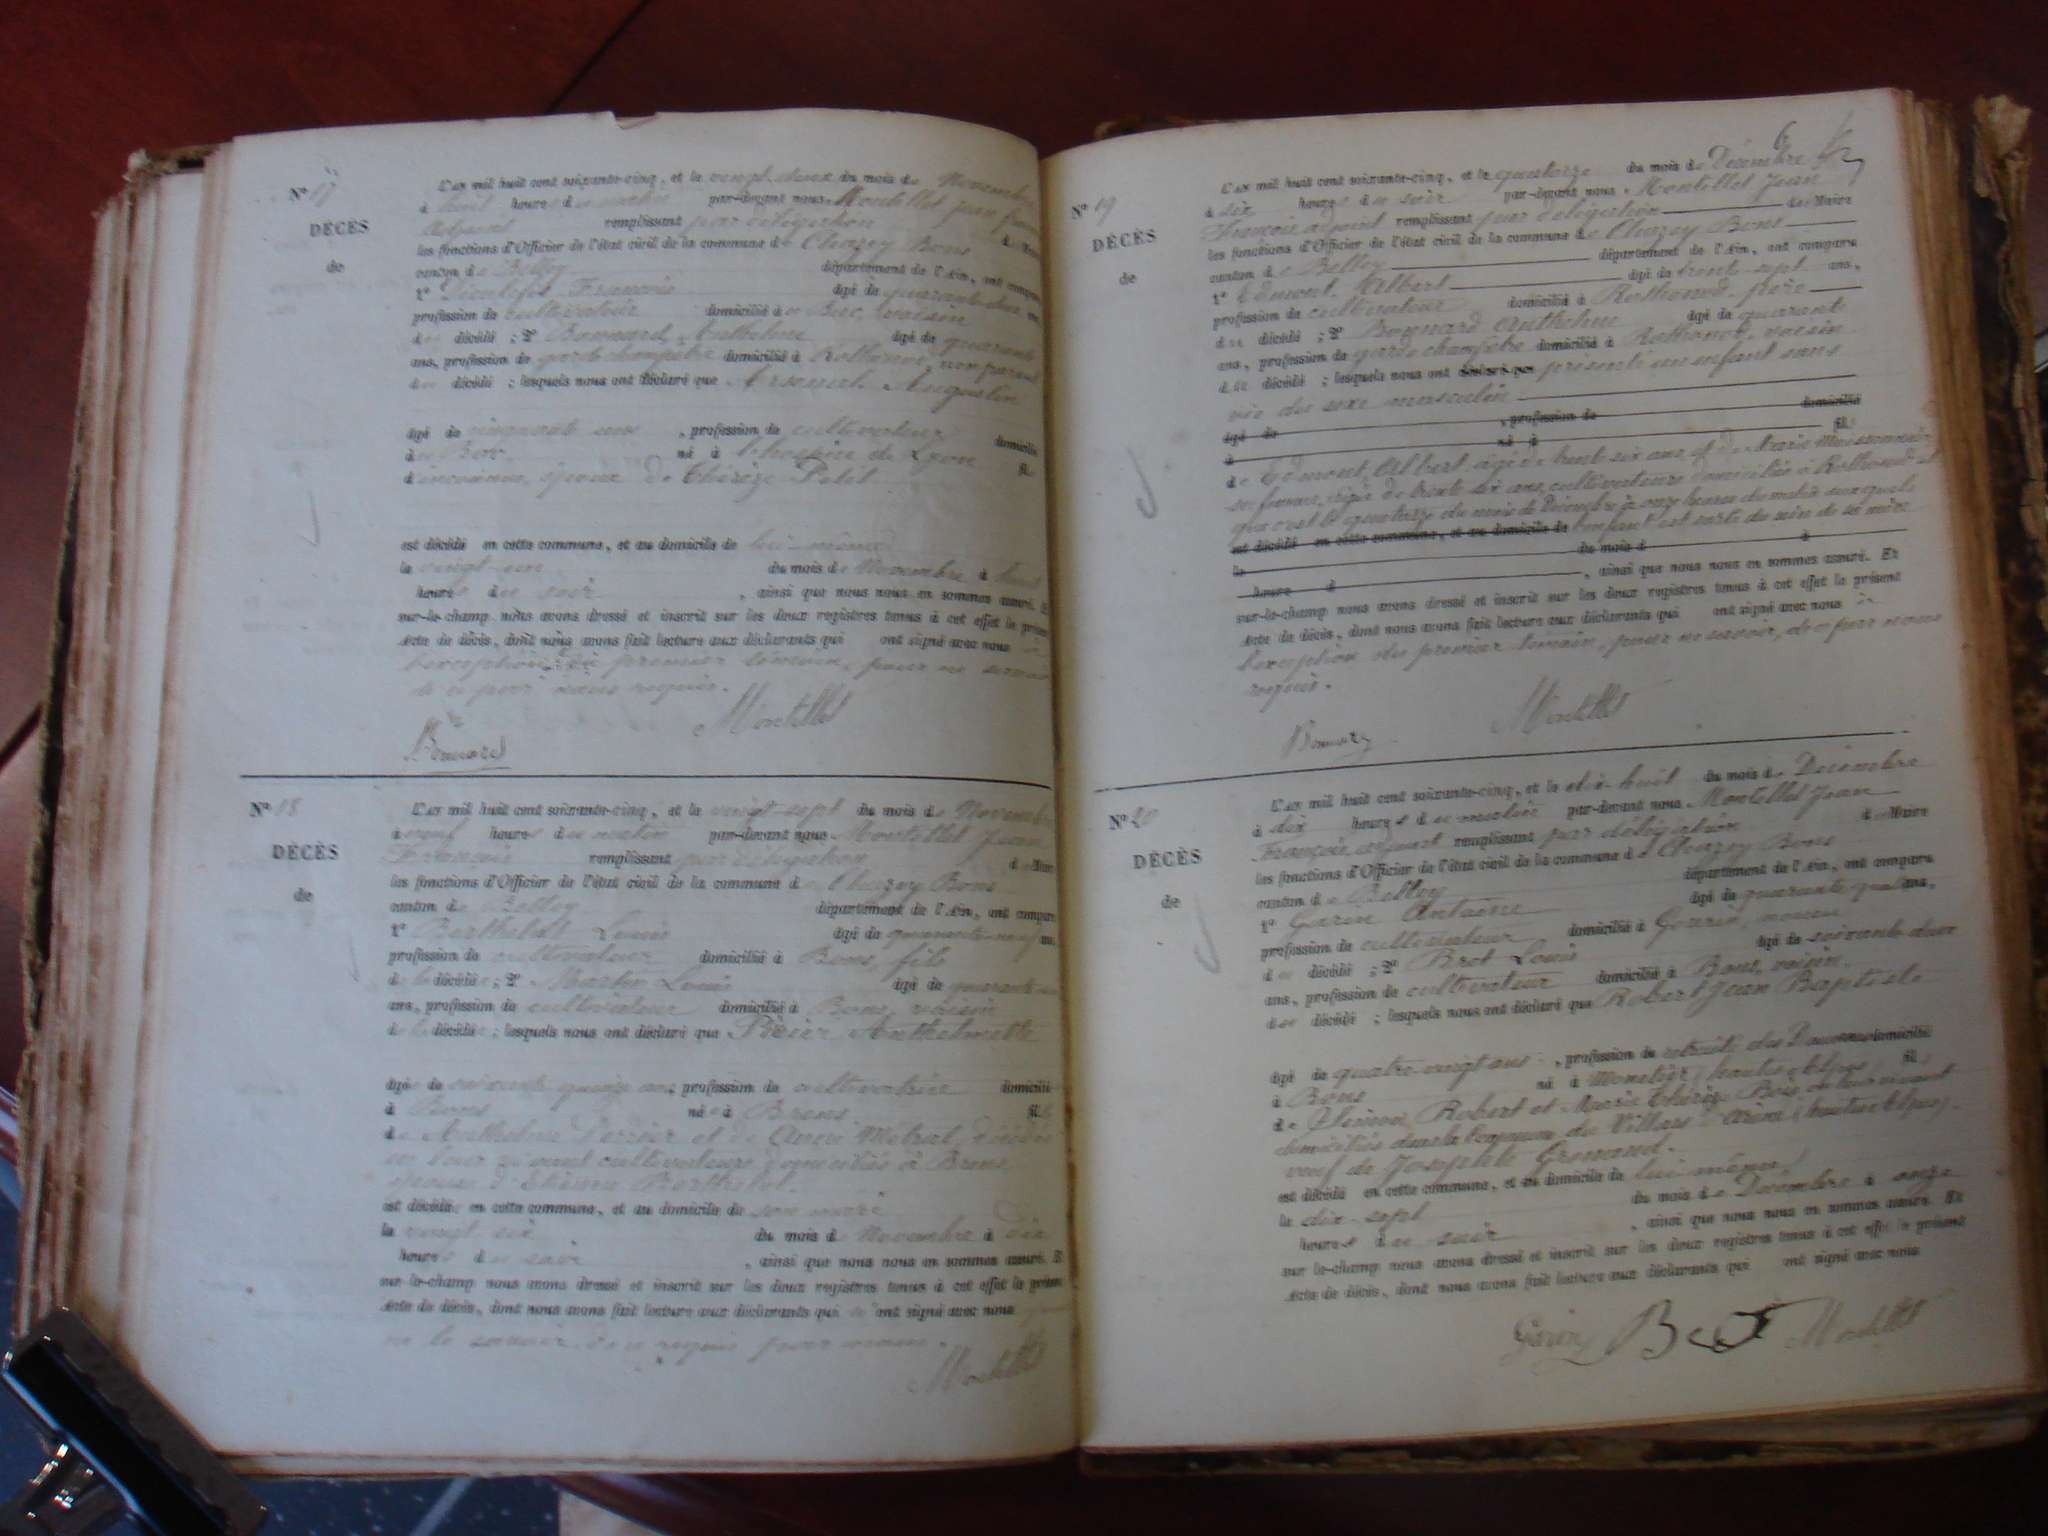 Nº 17
DÉCÈS
de
L'an mil huit cent soixante-cinq, et le vingt-deux du mois de Novembre
à huit heures du matin par-devant nous Montillet Jean François
adjoint remplissant par délégation de Maire
les fonctions d'Officier de l'état civil de la commune de Chazey Bons
canton de Belley département de l'Ain, ont comparu
1º François âgé de quarante deux ans,
profession de cultivateur domicilié à voisin
du décédé ; 2º Bonnard Anthelme âgé de quarante
ans, profession de garde champêtre domicilié à Rothonod, non parent
du décédé ; lesquels nous ont déclaré que Augustin
âgé de cinquante ans, profession de cultivateur domicilié
à né à l'hospice de Lyon fils
d'inconnus, époux de Thérèze Petit
est décédé en cette commune, et au domicile de lui-même
le vingt-un du mois de Novembre à huit
heures du soir, ainsi que nous nous en sommes assuré. Et
sur-le-champ nous avons dressé et inscrit sur les deux registres tenus à cet effet le présent
Acte de décès, dont nous avons fait lecture aux déclarants qui ont signé avec nous à
l'exception du premier témoin, pour ne savoir
de ce par nous requis.
Bonnard Montillet
Nº 18
DÉCÈS
de
L'an mil huit cent soixante-cinq, et le vingt-sept du mois de Novembre
à neuf heures du matin par-devant nous Montillet Jean
François remplissant par délégation de Maire
les fonctions d'Officier de l'état civil de la commune de Chazey Bons
canton de Belley département de l'Ain, ont comparu
1º Berthelot Louis âgé de quarante-neuf ans,
profession de cultivateur domicilié à Bons, fils
de la décédée ; 2º Martin Louis âgé de quarante
ans, profession de cultivateur domicilié à Bons, voisin
de la décédée ; lesquels nous ont déclaré que Anthelmette
âgée de soixante quinze ans, profession de cultivatrice domiciliée
à Bons née à Brens fille
de Anthelme et de décédés
en leur vivant cultivateurs domiciliés à Brens
épouse d'Etienne Berthelot.
est décédée en cette commune, et au domicile de son mari
le vingt six du mois de Novembre à dix
heures du soir, ainsi que nous nous en sommes assuré. Et
sur-le-champ nous avons dressé et inscrit sur les deux registres tenus à cet effet le présent
Acte de décès, dont nous avons fait lecture aux déclarants qui ont signé avec nous
ne le savoir de ce requis par nous.
Montillet
Nº 19
DÉCÈS
de
L'an mil huit cent soixante-cinq, et le quatorze du mois de Décembre
à six heures du soir par-devant nous Montillet Jean
François, adjoint remplissant par délégation de Maire
les fonctions d'Officier de l'état civil de la commune de Chazey Bons
canton de Belley département de l'Ain, ont comparu
1º Edmont Albert âgé de trente-sept ans,
profession de cultivateur domicilié à Rothonod, père
du décédé ; 2º Bonnard Anthelme âgé de quarante
ans, profession de garde champêtre domicilié à Rothonod, voisin
du décédé ; lesquels nous ont déclaré que présenté un enfant sans
vie du sexe masculin
âgé de , profession de domicilié
à né à fils
de Edmont Albert âgé de trente six ans et de Marie
sa femme, âgée de trente six ans, cultivateurs domiciliés à Rothonod et
que c'est le quatorze du mois de Décembre à onze heures du matin auxquels
est décédé en cette commune, et au domicile de l'enfant est sorti du sein de sa mère
le du mois d à
heure d , ainsi que nous nous en sommes assuré. Et
sur-le-champ nous avons dressé et inscrit sur les deux registres tenus à cet effet le présent
Acte de décès, dont nous avons fait lecture aux déclarants qui ont signé avec nous à
l'exception du premier témoin, pour ne savoir, de ce par nous
requis.
Bonnard Montillet
Nº 20
DÉCÈS
de
L'an mil huit cent soixante-cinq, et le dix huit du mois de Décembre
à dix heures du matin par-devant nous Montillet Jean
François, adjoint remplissant par délégation de Maire
les fonctions d'Officier de l'état civil de la commune de Chazey Bons
canton de Belley département de l'Ain, ont comparu
1º Garin Antoine âgé de quarante quatre ans,
profession de cultivateur domicilié à
du décédé ; 2º Brot Louis âgé de soixante deux
ans, profession de cultivateur domicilié à Bons, voisin
du décédé ; lesquels nous ont déclaré que Robert Jean Baptiste
âgé de quatre-vingt ans, profession de retraité des Douanes domicilié
à Bons né à Monetier (hautes Alpes) fils
de Robert et Marie Thérèze Bois, en leur vivant
domiciliés dans la commune de Villars d'Arène (hautes Alpes).
veuf de Josephte
est décédé en cette commune, et au domicile de lui-même
le dix-sept du mois de Décembre à onze
heures du soir, ainsi que nous nous en sommes assuré. Et
sur-le-champ nous avons dressé et inscrit sur les deux registres tenus à cet effet le présent
Acte de décès, dont nous avons fait lecture aux déclarants qui ont signé avec nous
Garin Brot Montillet